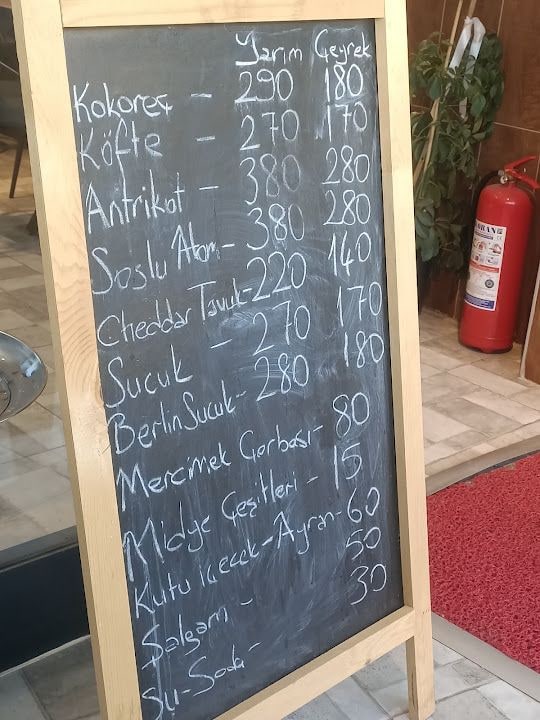 Yarım Çeyrek
Kokoreç - 290 180
Köfte - 270 170
Antrikot - 380 280
Soslu Atom - 380 280
Cheddar Tavuk - 220 140
Sucuk - 270 170
Berlin Sucuk - 280 180
Mercimek Çorbası - 80
Midye Çeşitleri - 15
Kutu içecek - Ayran - 60
Şalgam - 50
Su - Soda - 30